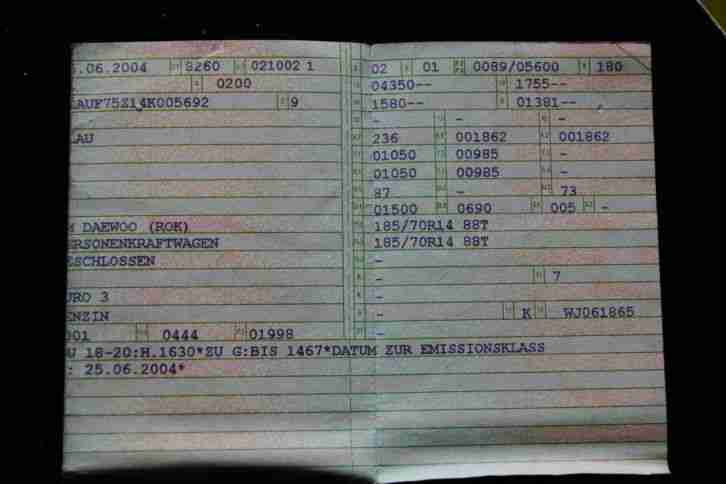 .06.2004 8260 021002 1 02 01 0089/05600 180
0200 04350-- 1755--
AUF75Z14K005692 9 1580-- 01381--
- - -
AU 236 001862 001862
01050 00985 -
01050 00985 -
87 - 73
01500 0690 005 -
M DAEWOO (ROK) 185/70R14 88T
ERSONENKRAFTWAGEN 185/70R14 88T
ESCHLOSSEN -
- 7
URO 3 -
ENZIN - K WJ061865
001 0444 01998 -
U 18-20:H.1630*ZU G:BIS 1467*DATUM ZUR EMISSIONSKLASS
: 25.06.2004*